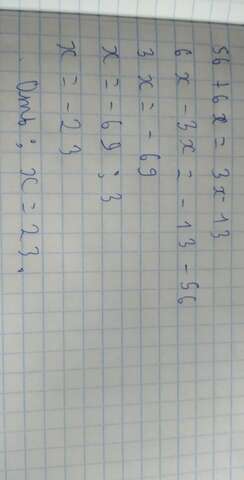 56 + 6x = 3x - 13
6x - 3x = -13 - 56
3x = -69
x = -69 : 3
x = -23
Отв: x = 23.